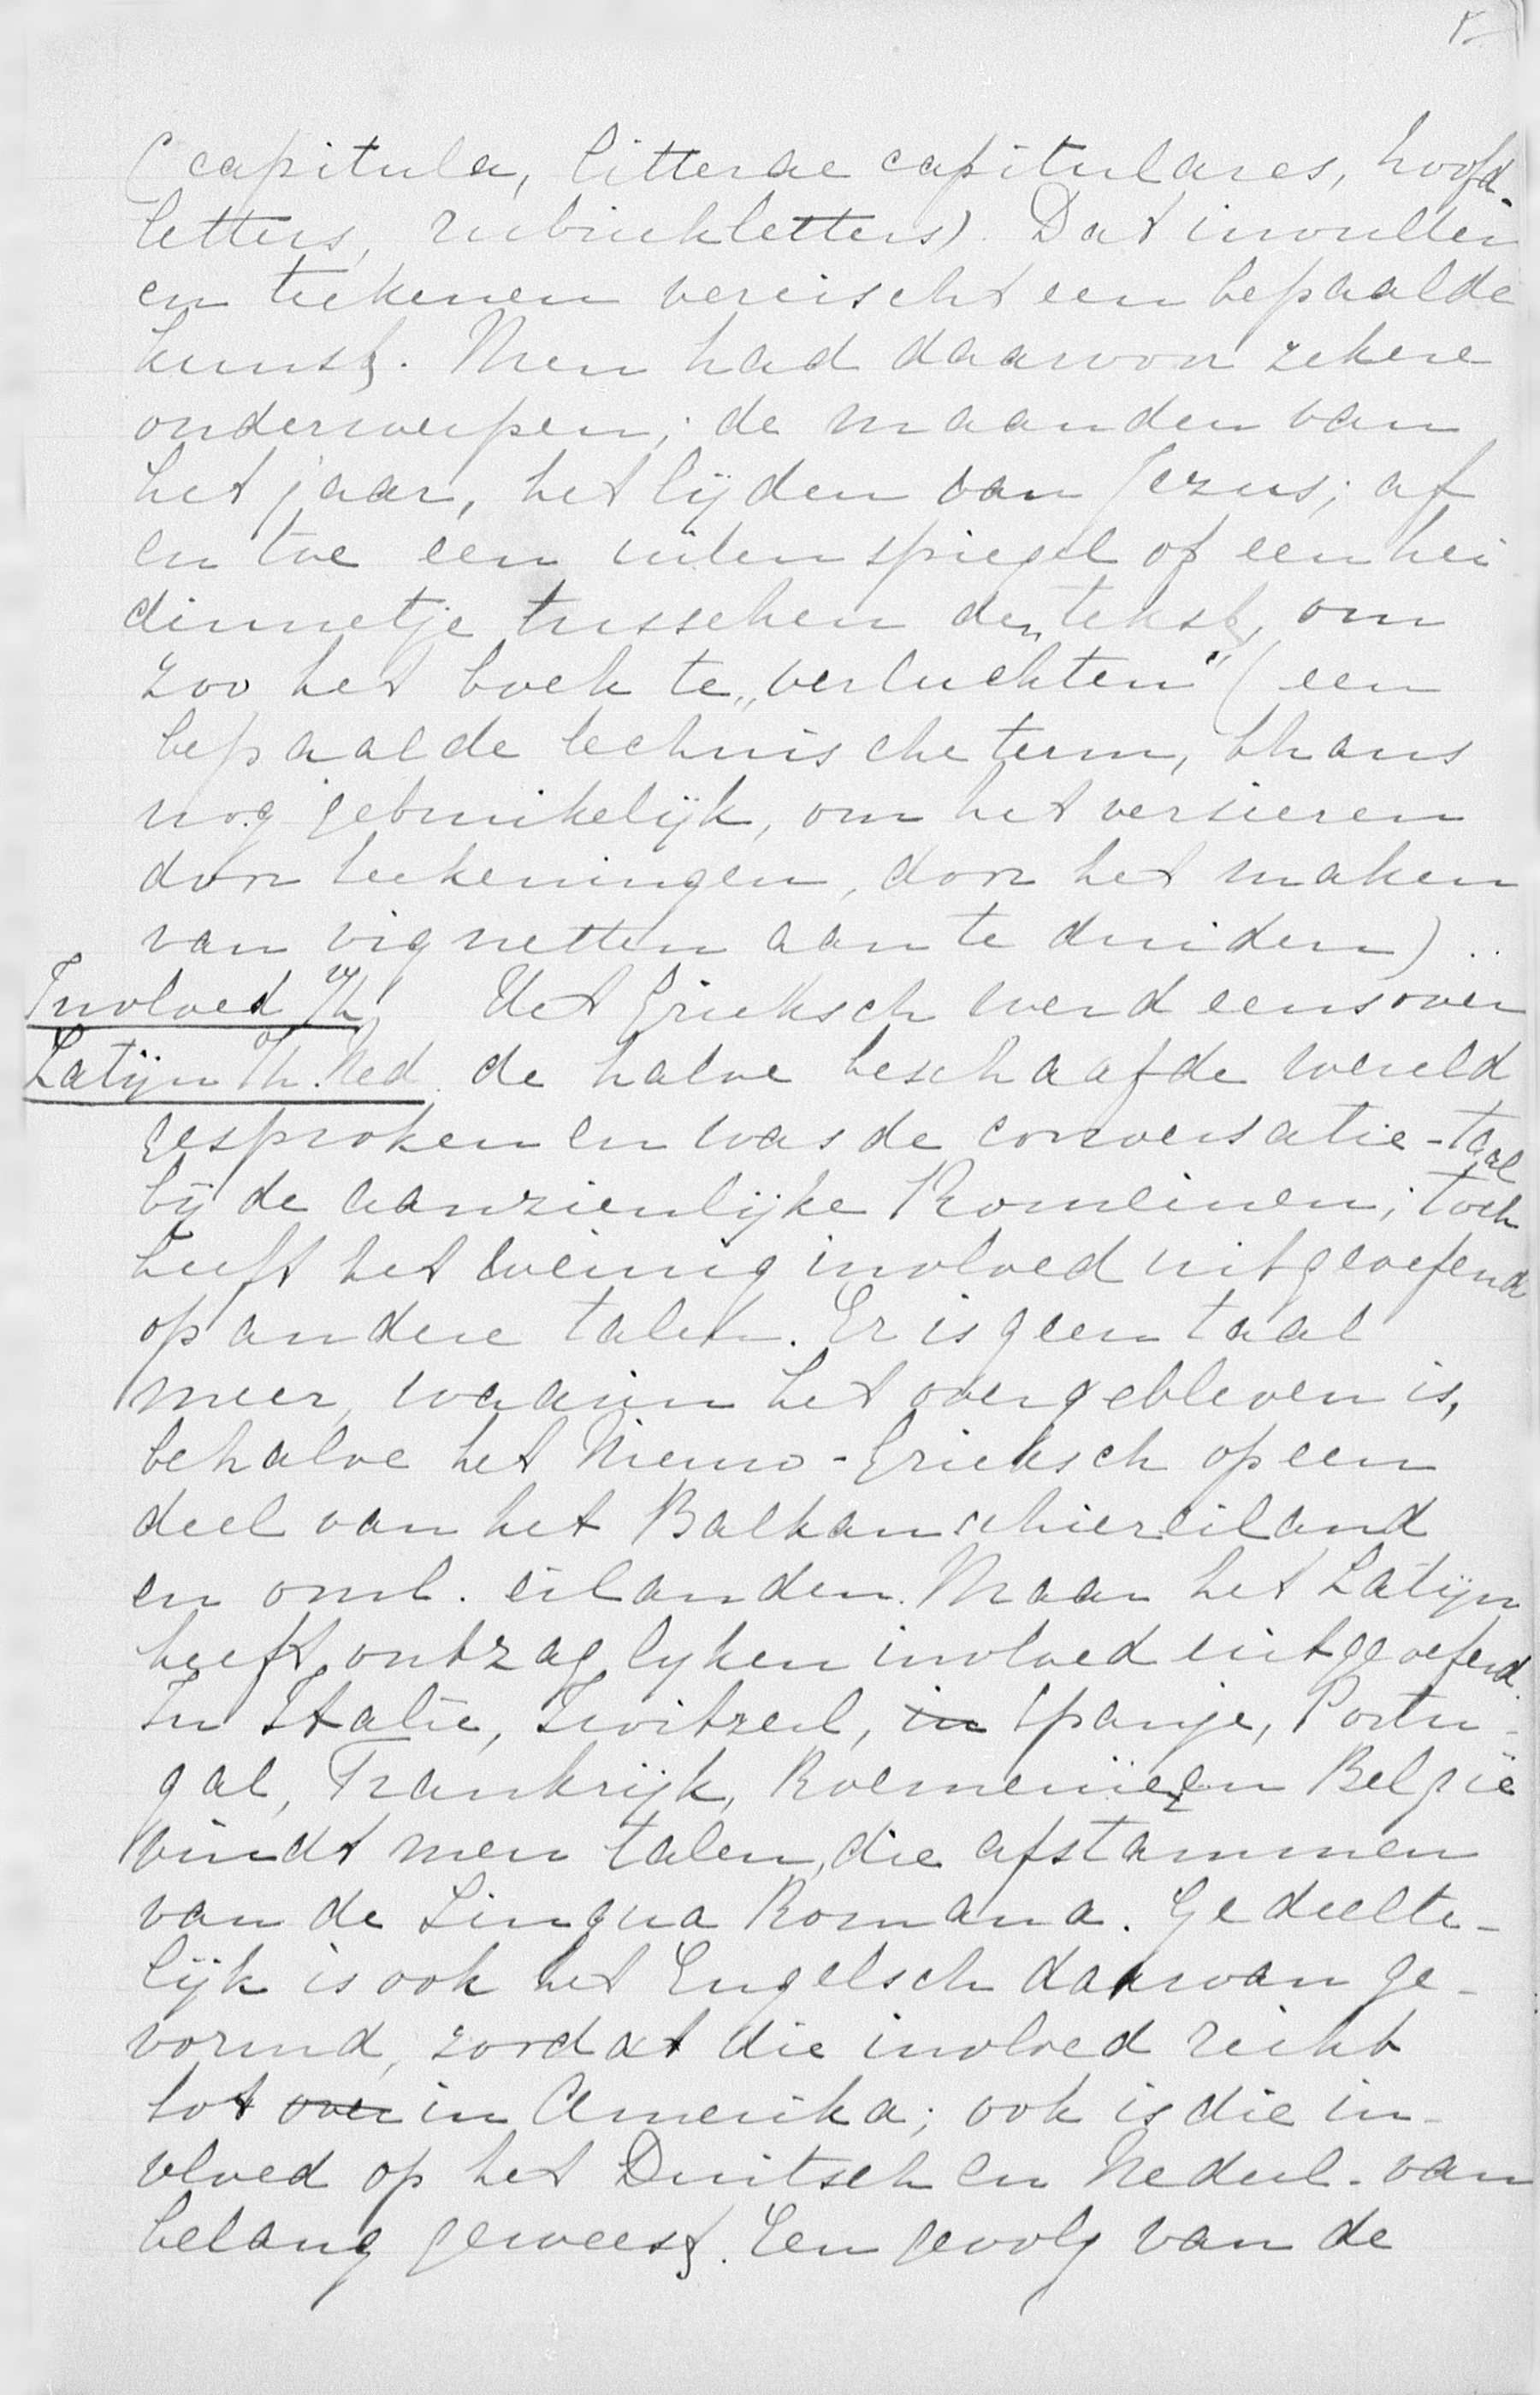 (capitula, litterae capitulares, hoofd-
letters, rubriekletters). Dat invullen
en teekenen vereischt een bepaalde
kunst. Men had daarvoor zekere
onderwerpen; de maanden van
het jaar, het lijden van Jezus; af
en toe een uilenspiegel of een hei
dinnetje tusschen den tekst, om
zoo het boek te „verluchten" (een
bepaalde technische term, thans
nog gebruikelijk, om het versieren
door teekeningen, door het maken
van vignetten aan te duiden).
Invloed
Latijn Ned.
Het Grieksch werd eens over
de halve beschaafde wereld
gesproken en was de conversatie-taal
bij de aanzienlijke Romeinen; toch
heeft het weinig invloed uitgeoefend
op andere talen. Er is geen taal
meer, waarin het overgebleven is,
behalve het Nieuw-Grieksch op een
deel van het Balkanschiereiland
en oml. eilanden. Maar het Latijn
heeft ontzaglijken invloed uitgeoefend.
In Italië, Zwitzerl, in Spanje, Portu-
gal, Frankrijk, Roemenië en België
vindt men talen, die afstammen
van de Lingua Romana. Gedeelte-
lijk is ook het Engelsch daarvan ge-
vormd, zoodat die invloed reikt
tot over in Amerika; ook is die in-
vloed op het Duitsch en Nederl. van
belang geweest. Een gevolg van de